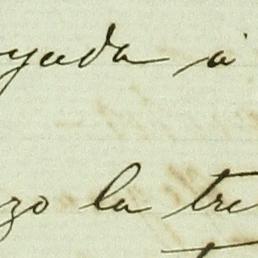 yuda á
zo la tre